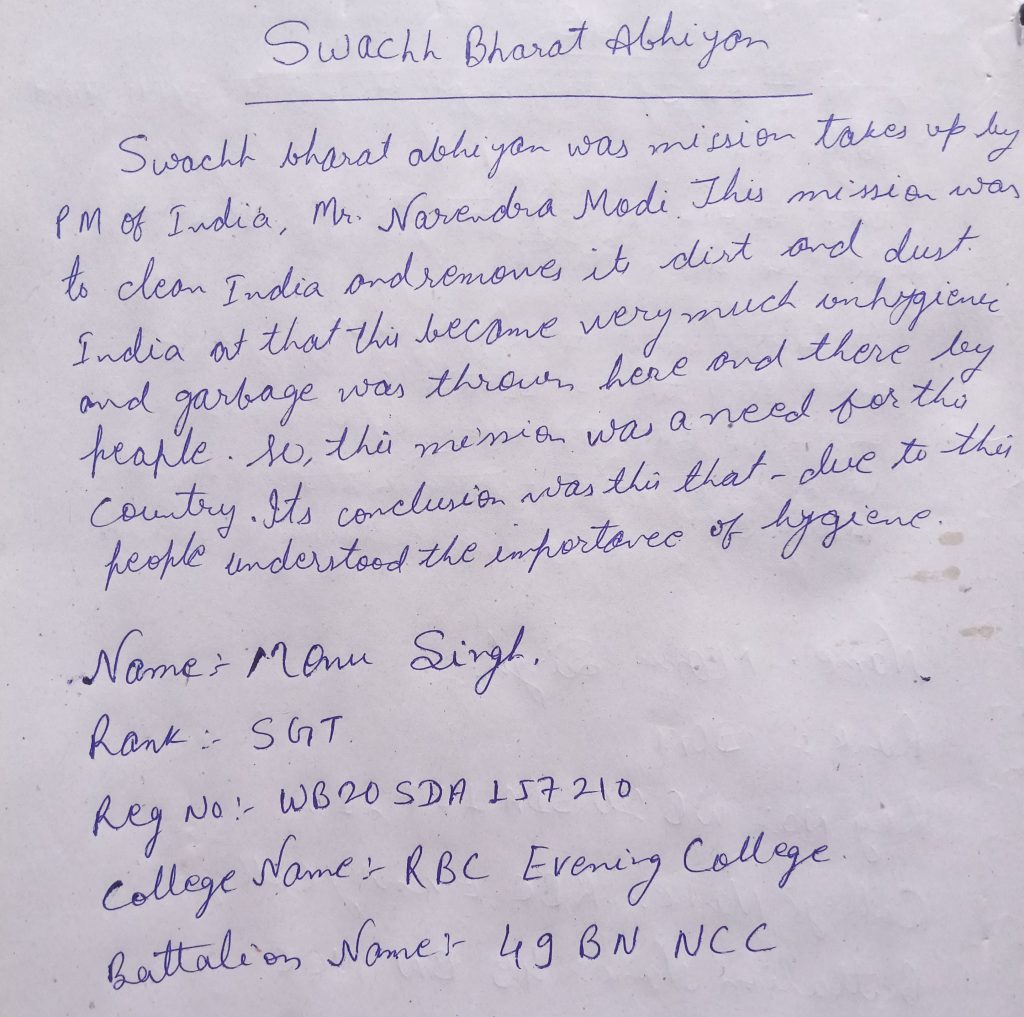 Swachh Bharat Abhiyan
Swachh bharat abhiyan was mission takes up by
PM of India, Mr. Narendra Modi. This mission was
to clean India and removes it dirt and dust.
India at that this became very much unhygienic
and garbage was thrown here and there by
people. So, this mission was a need for this
country. Its conclusion was this that - due to this
people understood the importance of hygiene.
Name:- Monu Singh.
Rank:- SGT
Reg No:- WB20 SDA 157210
College Name:- RBC Evening College.
Battalion Name:- 49 BN NCC